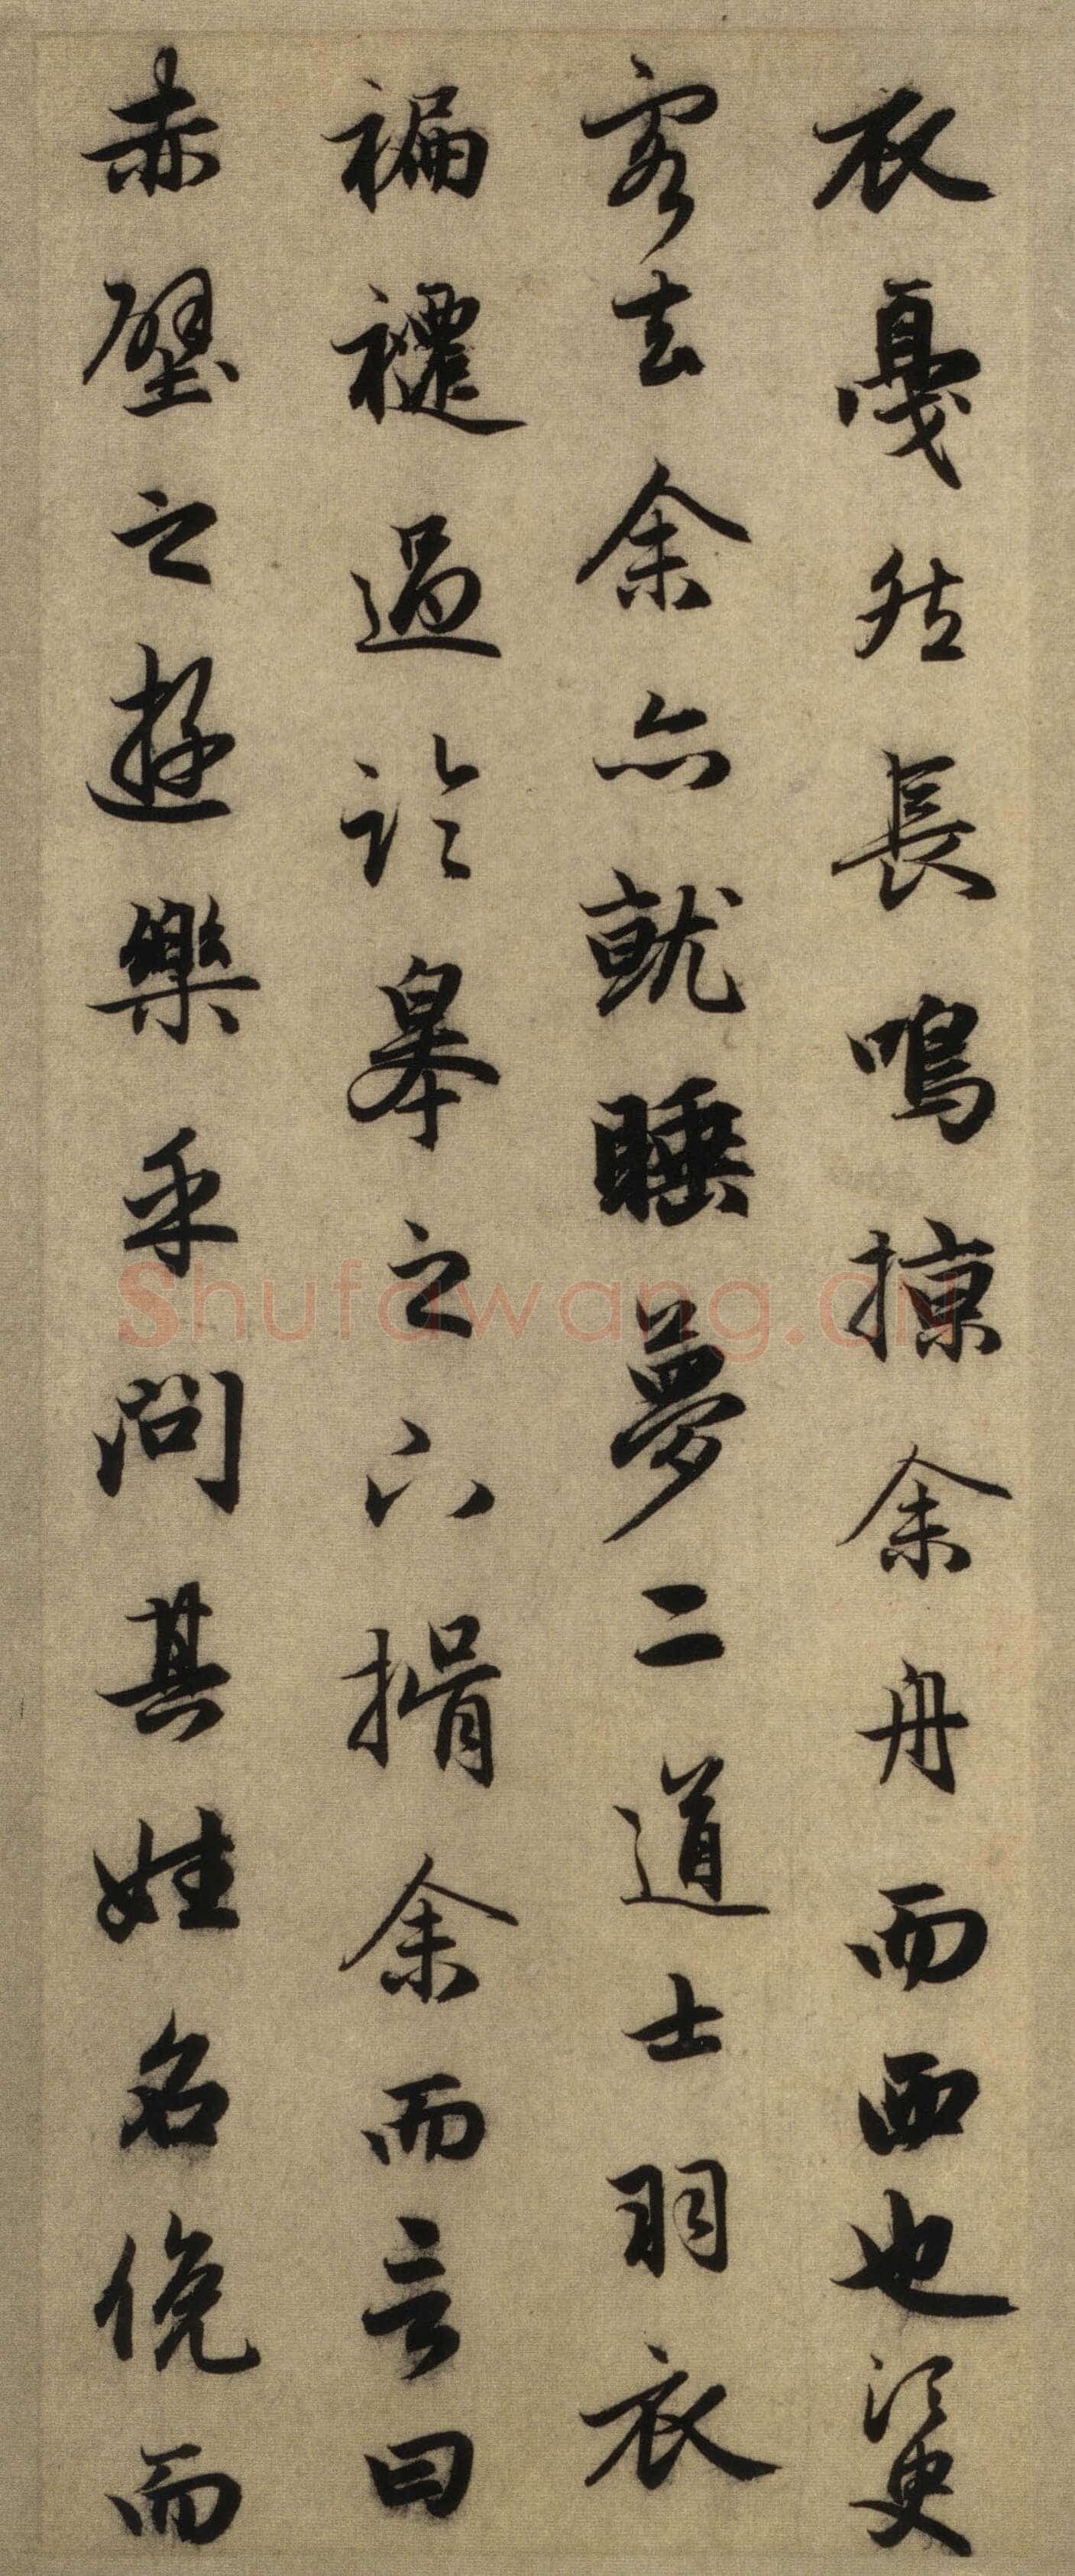 衣戛然長鳴掠余舟而西也須臾
客去余亦就睡夢二道士羽衣
褊褼過臨皋之下揖余而言曰
赤壁之遊樂乎問其姓名俛而
Shufawang.CN